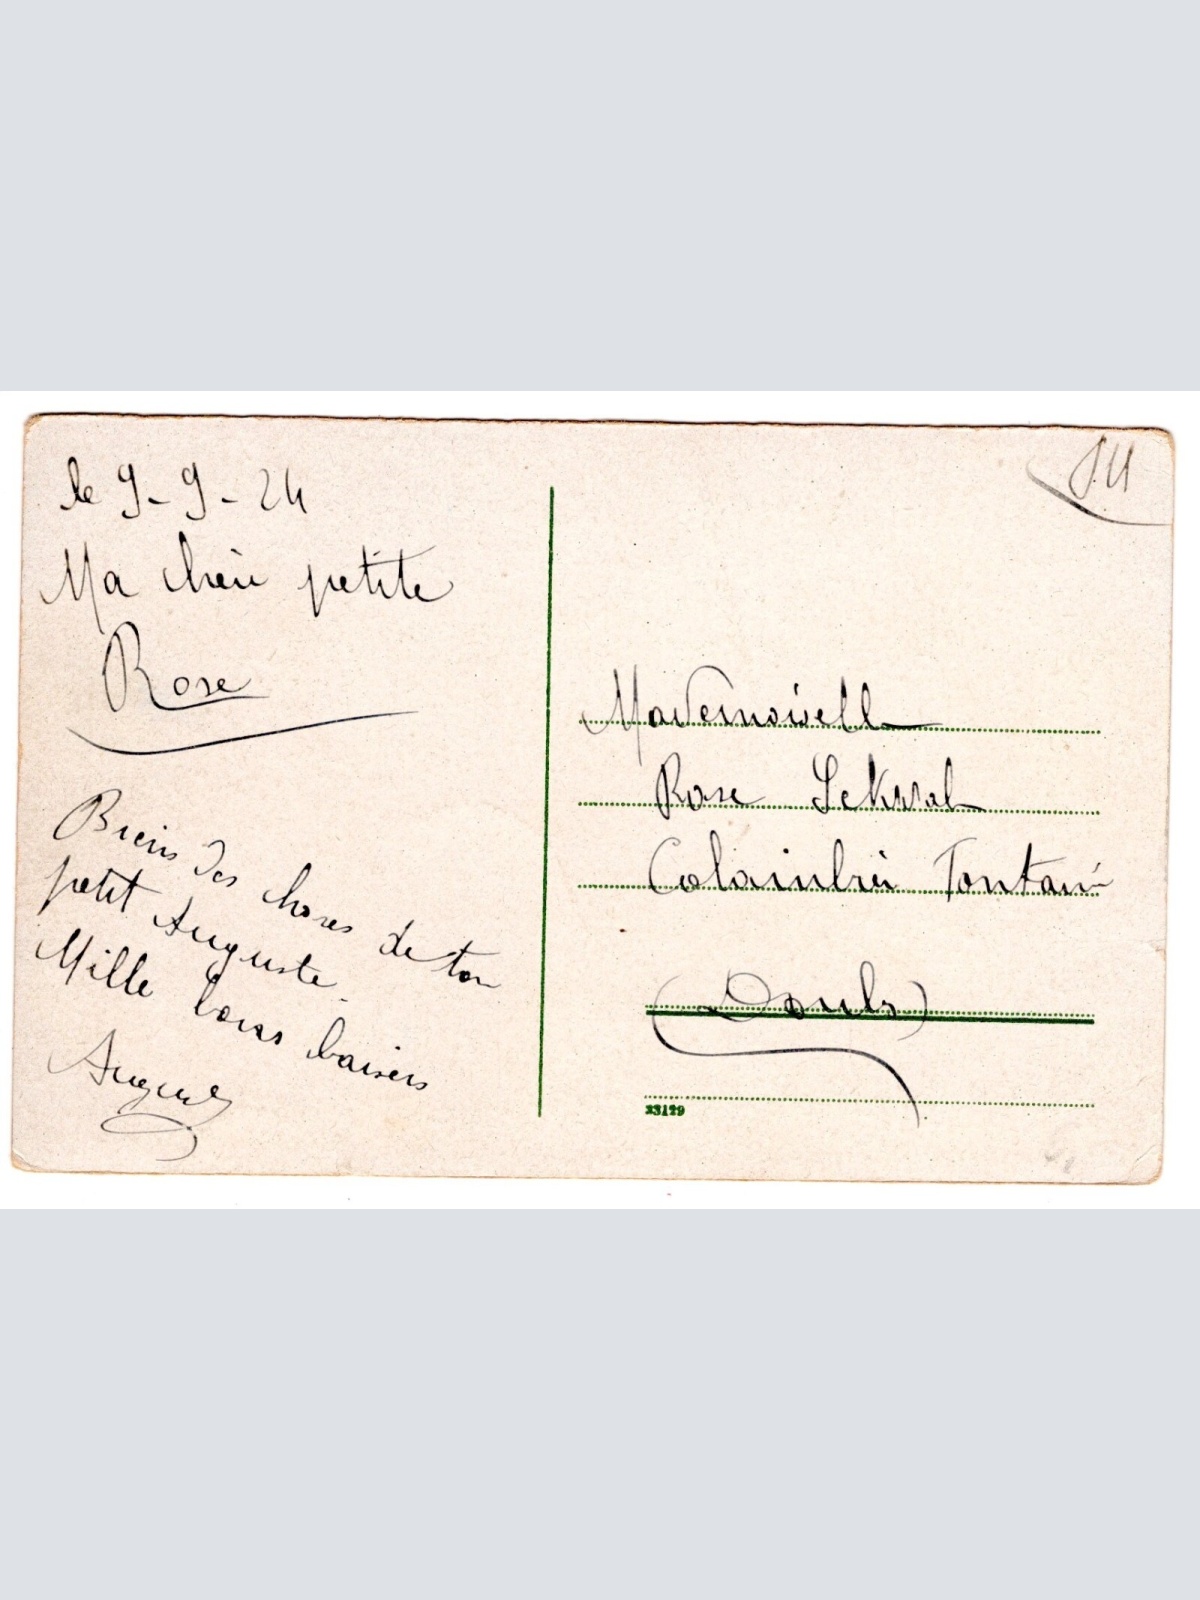 le 9-9-24
Ma chère petite
Rose
Biens des choses de ton
petit Auguste.
Mille bons baisers
Auguste
Mademoiselle
Rose
Fontain
(Doubs)
23129